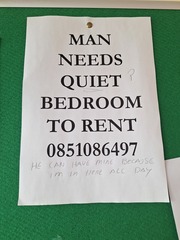 MAN
NEEDS
QUIET ?
BEDROOM
TO RENT
0851086497
HE CAN HAVE MINE BECAUSE
I'M IN
ALL DAY